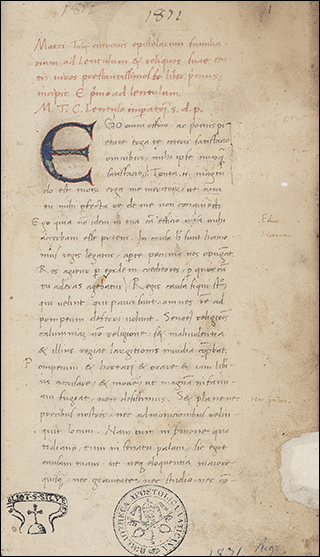 1871
1
Marci Tulij ciceronis epistolarum familia
rium ad lentulum & reliquos suae eta
tis viros prestantissimos liber primus
incipit & primo ad lentulum
M. T. C. Lentulo s. p. d.
EGO omni officio, ac potius pi
etate erga te ceteris satisfacio
omnibus, mihi ipse
satisfacio. Tanta
do est tuorum erga me meritorum, ut
tu nisi perfecta re de me non
Ego quia non idem in tua causa efficio vitam mihi
acerbam esse putem. In causa
nius regis legatus, aperte pecunia nos oppugnat
Res agitur per eosdem creditores, per quos cum
tu aderas agebatur. Regis causa siqui sunt
qui velint, qui pauci sunt, omnes rem ad
pompeium deferri volunt. Senatus religionis
calumniam non religione, sed malivolentia
& illius regiae largitionis invidia comprobat.
Pompeium & hortari & orare & iam libe
rius accusare & monere, ut magnam infamiam
fugiat, non desistimus. Sed plane nec
precibus nostris, nec admonitionibus relin
quit locum. Nam tum in sermone quo
tidiano, tum in senatu palam, sic egit
causam tuam, ut neque eloquentia maiore
quisquam, nec gravitate, nec studio, nec co
BIBLIOTHECA APOSTOLICA VATICANA
1871